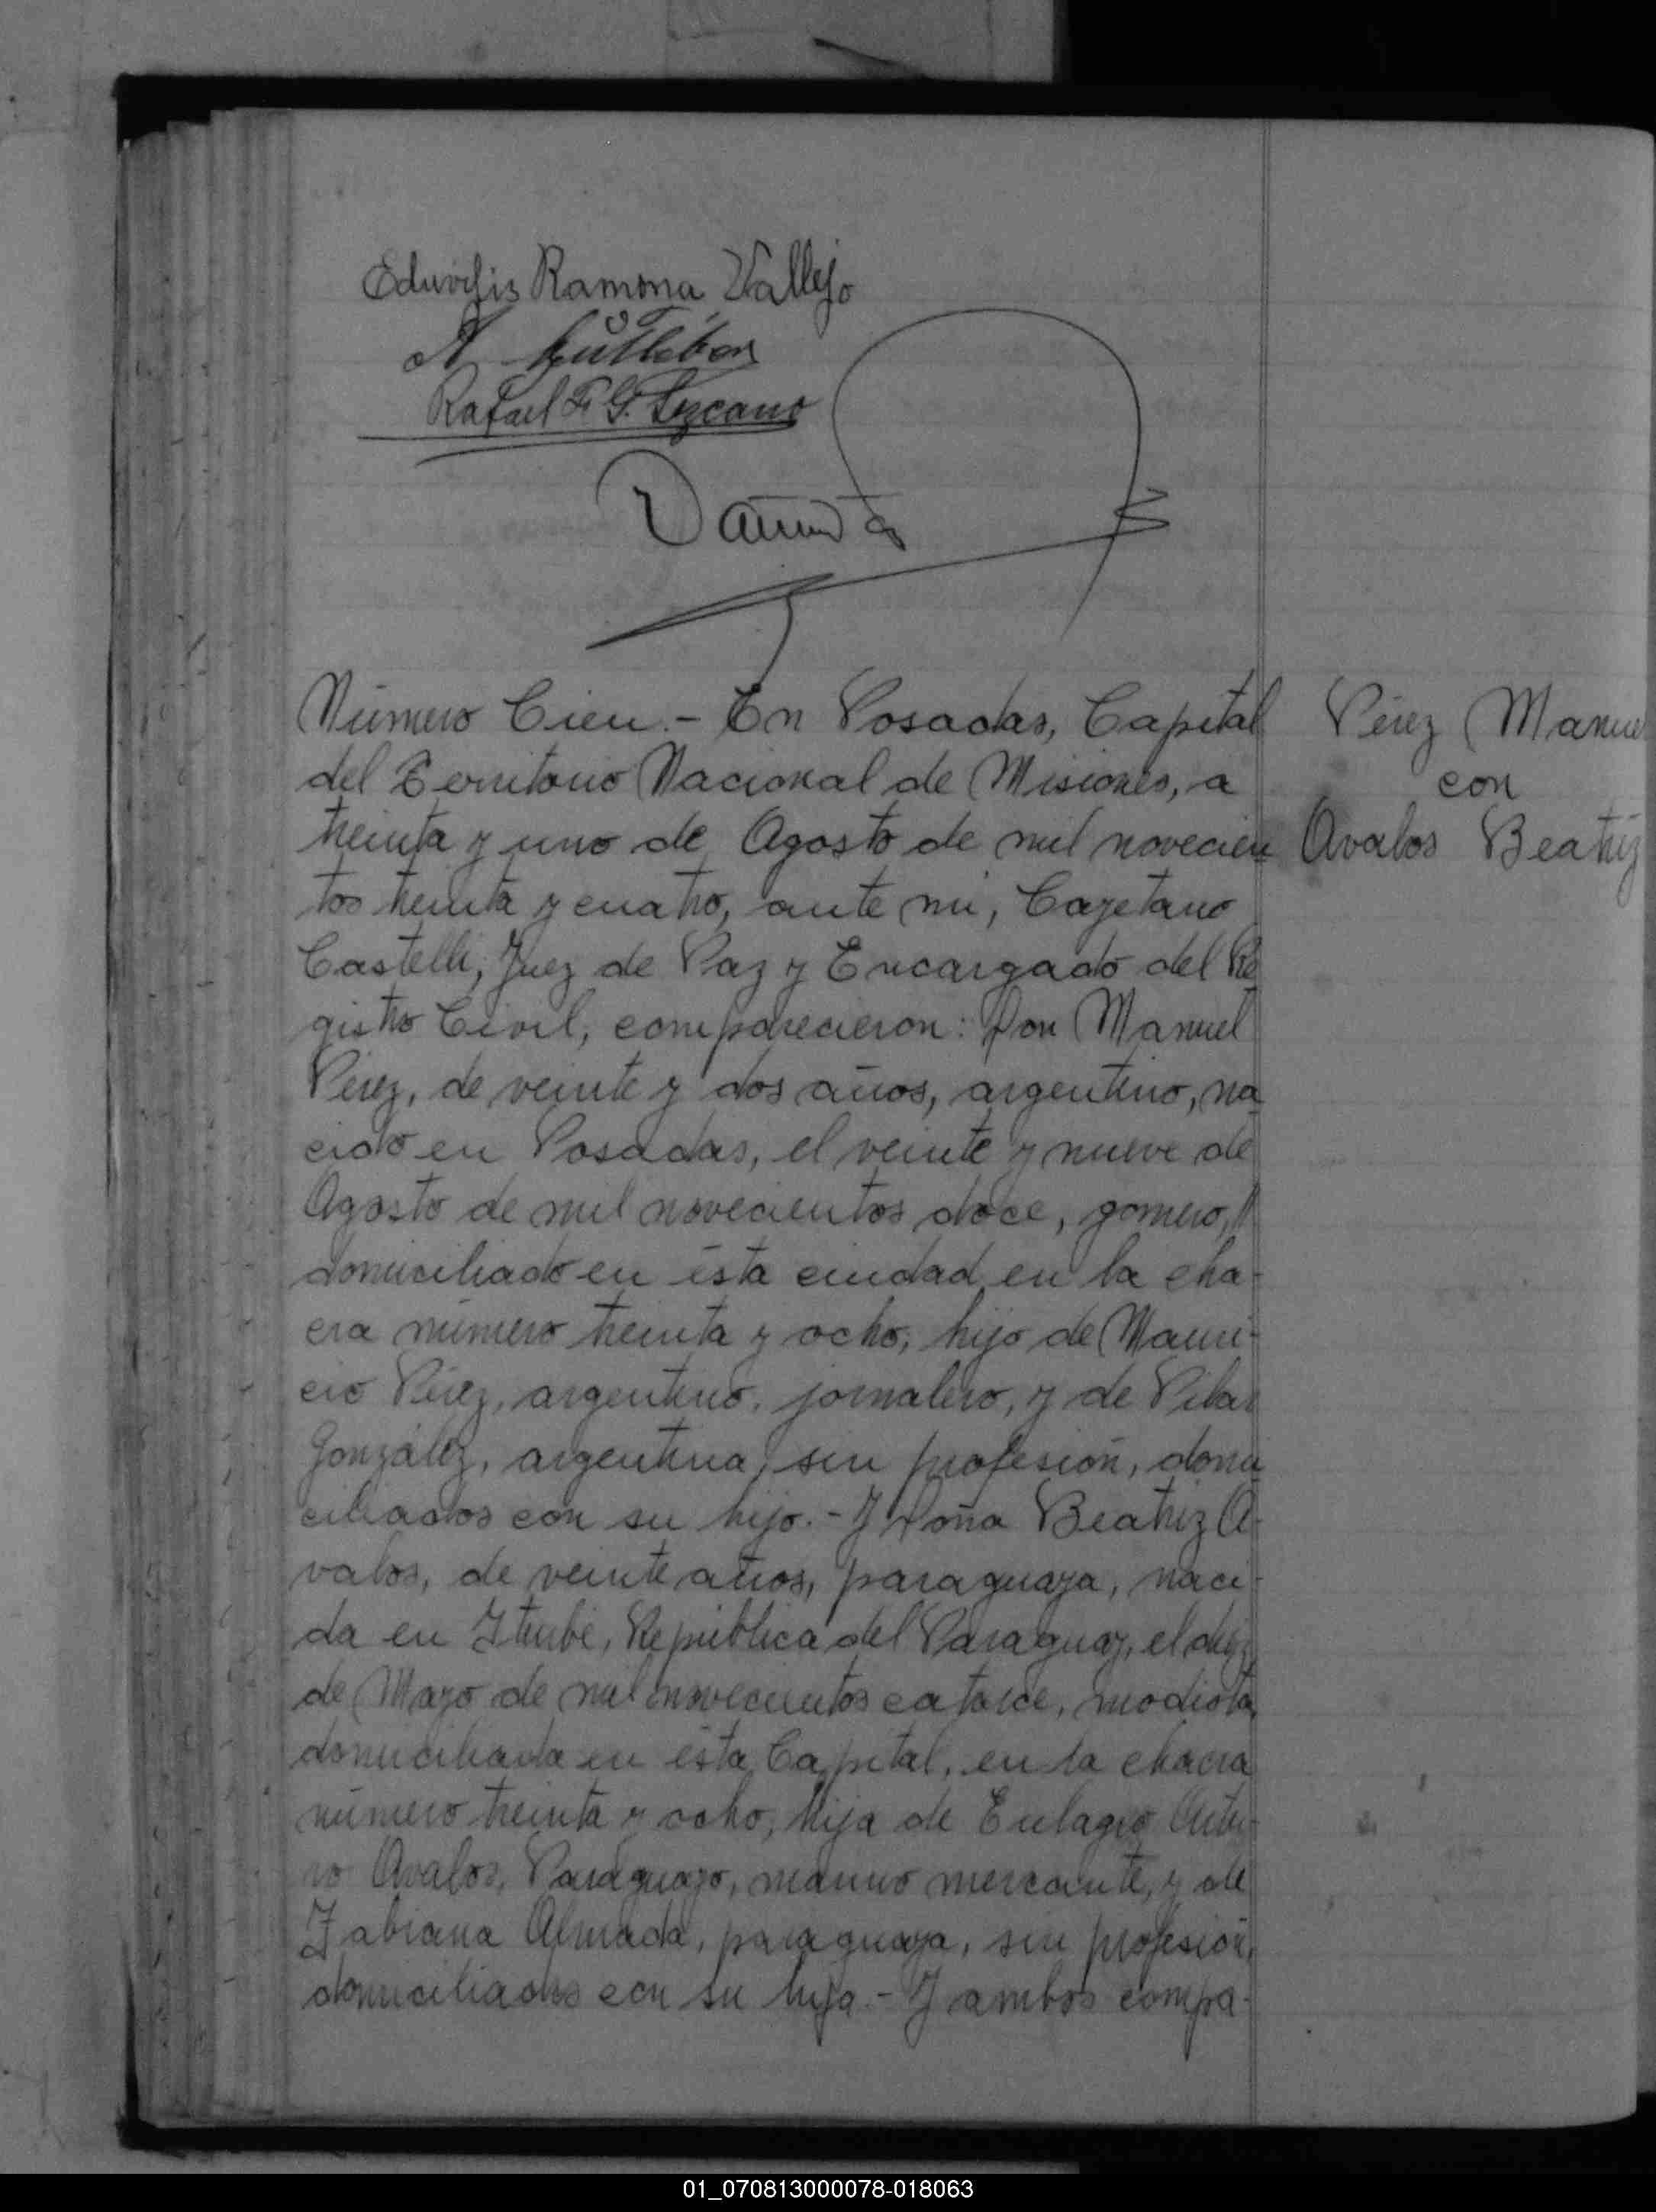 Eduvigis Ramona Vallejo
Rafael F. G. Lezcano
Número Cien.- En Posadas, Capital
del Territorio Nacional de Misiones, a
treinta y uno de Agosto de mil novecien
tos treinta y cuatro, ante mi, Cayetano
Castelli, Juez de Paz y Encargado del Re
gistro Civil, comparecieron: Don Manuel
Pérez, de veinte y dos años, argentino, na
cido en Posadas, el veinte y nueve de
Agosto de mil novecientos doce, gomero,
domiciliado en ésta ciudad en la cha-
cra número treinta y ocho, hijo de Mauri-
cio Pérez, argentino, jornalero, y de Pilar
González, argentina, sin profesión, domi
ciliados con su hijo.- Y Doña Beatriz A-
valos, de veinte años, paraguaya, naci-
da en Iturbe, República del Paraguay, el diez
de Mayo de mil novecientos catorce, modista,
domiciliada en ésta Capital, en la chacra
número treinta y ocho, hija de Eulagio
Avalos, Paraguayo, marino mercante, y de
Fabiana Almada, paraguaya, sin profesión,
domiciliados con su hija.- Y ambos compa-
Pérez Manuel
con
Avalos Beatriz
01_070813000078-018063